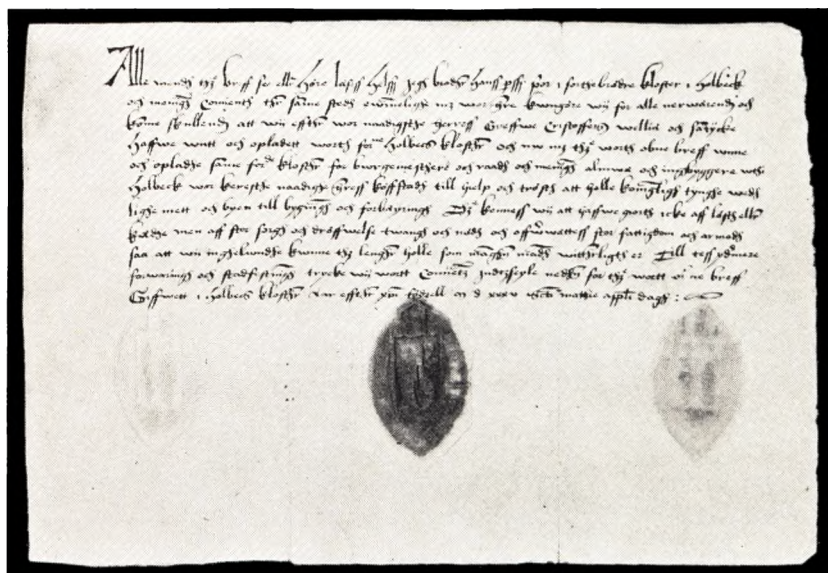 Alle mendh thz breff se ell'r höre læss helss jegh broder hans p'ss p'or i sorthebrødre kloster i holbeck
och menige Conuentz th'r sa'me steds ewi'nelighe m3 wor h're kwngøre wij for alle nerwærendh och
ko'me skullendh att wij effth'r wor naadigsthe herress Greffwe Cristoffers williæ och sa'tycke
haffwe wntt och opladett worth for'ne holbecks klosth'r och nw m3 th'e worth obne breff wnne
och opladhe sa'me for'e klosth'r for burgemesthere och raadh och menige almwæ och indbyggere wth
holbeck wor keresthe naadige h'ress køffstadh till help och trøsth att holle kon'ligs tynghe wedh
lighe mett och byen till bygni'gh och forbæyringh Th' kenness wij att haffwe giorth icke aff læsth ell'r
had'ge men aff stor sorgh och drøffwelse twangh och nødh och offu'wættess stor fattigdom och armodh
saa att wij inghelwndhe kwnne thz lengh'r holle som ma'ghen madh witth'rligth er Till tess yd'mere
forwaringh och stadfestni'gh trycke wij wortt Conuentz indzeyle nedh'n for th' wortt o'ne breff
Giffwett i holbecks klosth'r aar effth'r x'i fødzell m d xxxv s'cti mattie ap'li dagh :